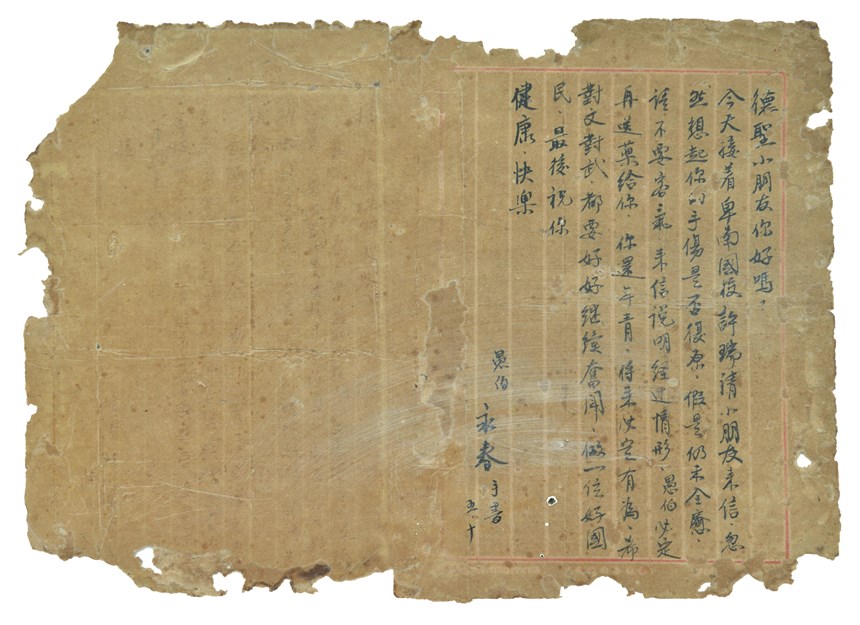 德聖小朋友你好嗎，
今天接着卑南國校許瑞請小朋友来信，忽
然想起你的手傷是否復原，假是仍未全癒，
請不要客氣来信說明經过情形，愚伯必定
再送藥給你，你還年青，将来必定有為，希
對文對武，都要好好继續奮鬥，做一位好國
民，最後祝你
健康，快樂
愚伯
永春手書
五、十